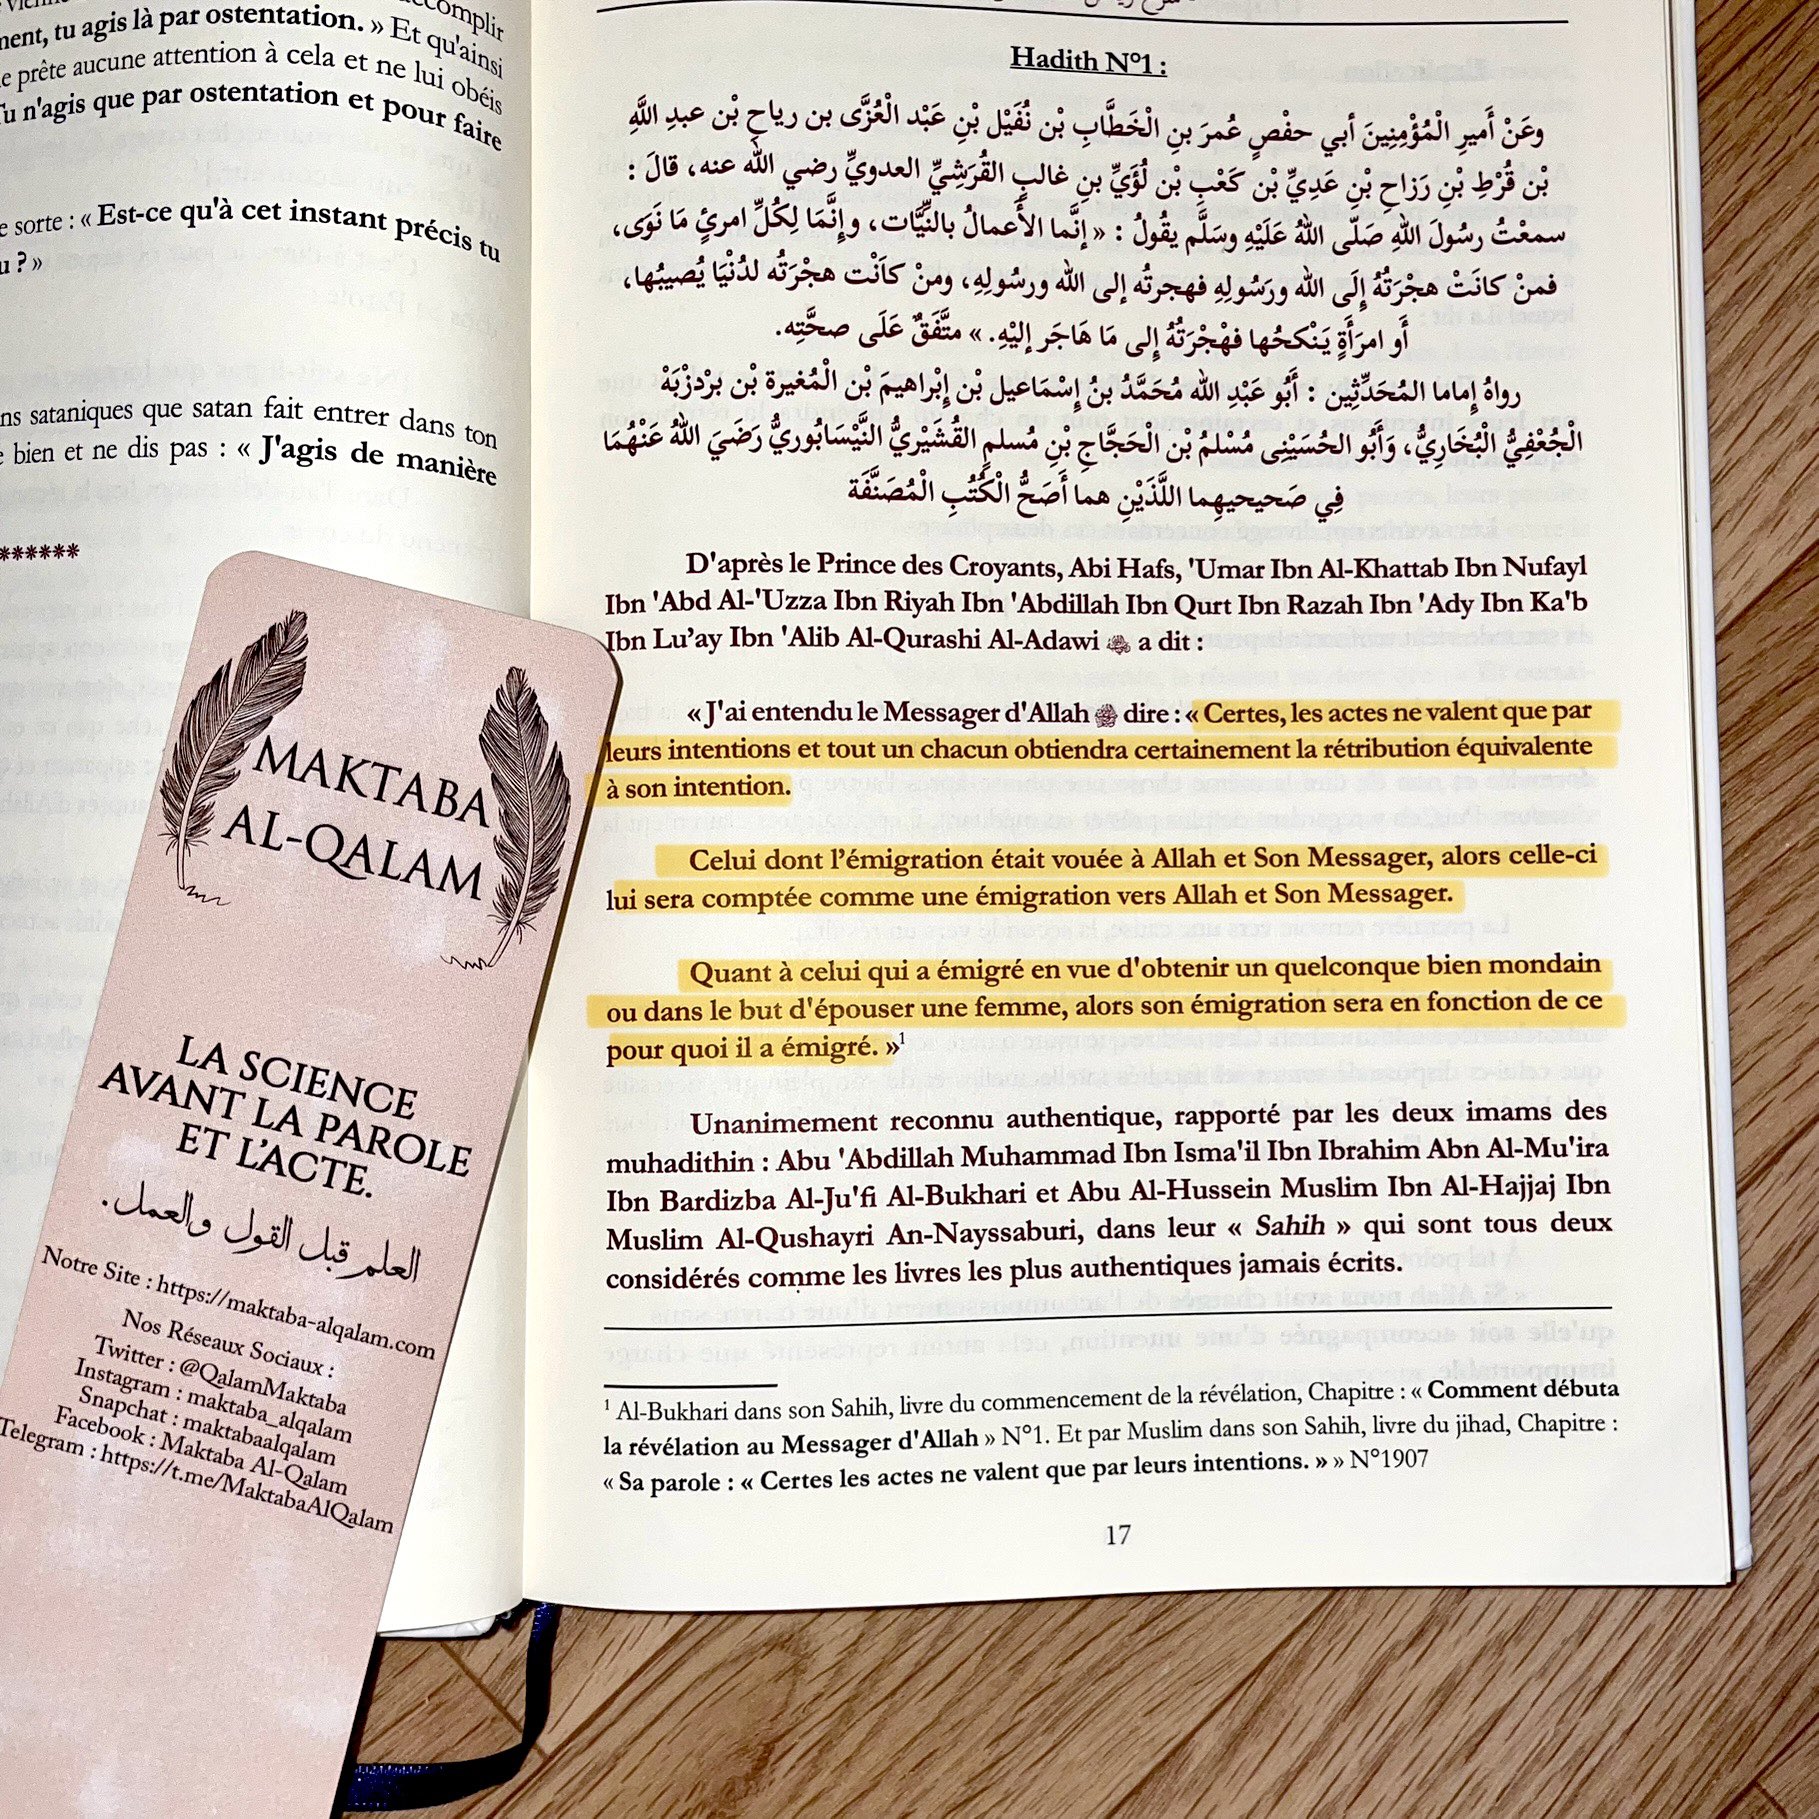 complir
ment, tu agis là par ostentation. » Et qu'ainsi
prête aucune attention à cela et ne lui obéis
Tu n'agis que par ostentation et pour faire
sorte : « Est-ce qu'à cet instant précis tu
? »
sataniques que satan fait entrer dans ton
bien et ne dis pas : « J'agis de manière
******
MAKTABA
AL-QALAM
LA SCIENCE
AVANT LA PAROLE
ET L'ACTE.
العلم قبل القول والعمل.
Notre Site : https://maktaba-alqalam.com
Nos Réseaux Sociaux :
Twitter : @QalamMaktaba
Instagram : maktaba_alqalam
Snapchat : maktabaalqalam
Facebook : Maktaba Al-Qalam
Telegram : https://t.me/MaktabaAlQalam
Hadith N°1 :
وعَنْ أَميرِ الْمُؤْمِنِينَ أبي حفْصٍ عُمرَ بنِ الْخَطَّابِ بْن نُفَيْل بْنِ عَبْد الْعُزَّى بن رياح بْن عبدِ اللَّهِ
بْن قُرْطِ بْنِ رَزاح بْنِ عَدِيِّ بْن كَعْبِ بْن لُؤَيِّ بنِ غالبٍ القُرَشِيِّ العدويِّ رضي الله عنه، قالَ :
سمعْتُ رسُولَ اللهِ صَلّى اللهُ عَلَيْهِ وسَلَّم يقُولُ : « إنَّما الأَعمالُ بالنِّيَّات، وإِنَّمَا لِكُلِّ امرئٍ مَا نَوَى،
فمنْ كانَتْ هجْرَتُهُ إِلَى الله ورَسُولِهِ فهجرتُه إلى الله ورسُولِهِ، ومنْ كاَنْت هجْرَتُه لدُنْيَا يُصيبُها،
أَو امرَأَةٍ يَنْكحُها فهْجْرَتُهُ إلى مَا هَاجَر إليْهِ. » متَّفَقٌ عَلَى صحَّتِه.
رواهُ إِماما المُحَدِّثِين : أَبُو عَبْدِ الله مُحَمَّدُ بنُ إِسْمَاعيل بْن إِبْراهيمَ بْن الْمُغيرة بْن برْدزْبَهْ
الْجُعْفِيُّ الْبُخَارِيُّ، وَأَبُو الحُسَيْنِى مُسْلمُ بْن الْحَجَّاجِ بْنِ مُسلمٍ القُشَيْريُّ النَّيْسَابُوريُّ رَضَيَ اللهُ عَنْهُمَا
فِي صَحيحيهِما اللَّذَيْنِ هما أَصَحُّ الْكُتُبِ الْمُصَنَّفَة
D'après le Prince des Croyants, Abi Hafs, 'Umar Ibn Al-Khattab Ibn Nufayl
Ibn 'Abd Al-'Uzza Ibn Riyah Ibn 'Abdillah Ibn Qurt Ibn Razah Ibn 'Ady Ibn Ka'b
Ibn Lu'ay Ibn 'Alib Al-Qurashi Al-Adawi a dit :
« J'ai entendu le Messager d'Allah ﷺ dire : « Certes, les actes ne valent que par
leurs intentions et tout un chacun obtiendra certainement la rétribution équivalente
à son intention.
Celui dont l'émigration était vouée à Allah et Son Messager, alors celle-ci
lui sera comptée comme une émigration vers Allah et Son Messager.
Quant à celui qui a émigré en vue d'obtenir un quelconque bien mondain
ou dans le but d'épouser une femme, alors son émigration sera en fonction de ce
pour quoi il a émigré. »¹
Unanimement reconnu authentique, rapporté par les deux imams des
muhadithin : Abu 'Abdillah Muhammad Ibn Isma'il Ibn Ibrahim Abn Al-Mu'ira
Ibn Bardizba Al-Ju'fi Al-Bukhari et Abu Al-Hussein Muslim Ibn Al-Hajjaj Ibn
Muslim Al-Qushayri An-Nayssaburi, dans leur « Sahih » qui sont tous deux
considérés comme les livres les plus authentiques jamais écrits.
¹ Al-Bukhari dans son Sahih, livre du commencement de la révélation, Chapitre : « Comment débuta
la révélation au Messager d'Allah » N°1. Et par Muslim dans son Sahih, livre du jihad, Chapitre :
« Sa parole : « Certes les actes ne valent que par leurs intentions. » » N°1907
17